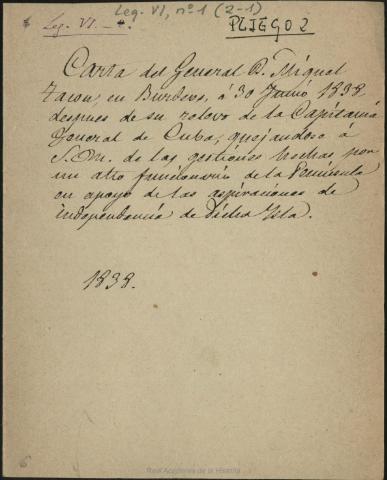 Leg. VI, nº 1 (2-1)
Leg. VI.
PLIEGO 2
Carta del General D. Miguel
Tacon, en Burdeos, á 30 Junio 1838
despues de su relevo de la Capitanía
General de Cuba, quejandose á
S. M. de las gestiones hechas por
un alto funcionario de la Peninsula
en apoyo de las aspiraciones de
independencia de dicha Isla.
1838.
6
Real Academia de la Historia